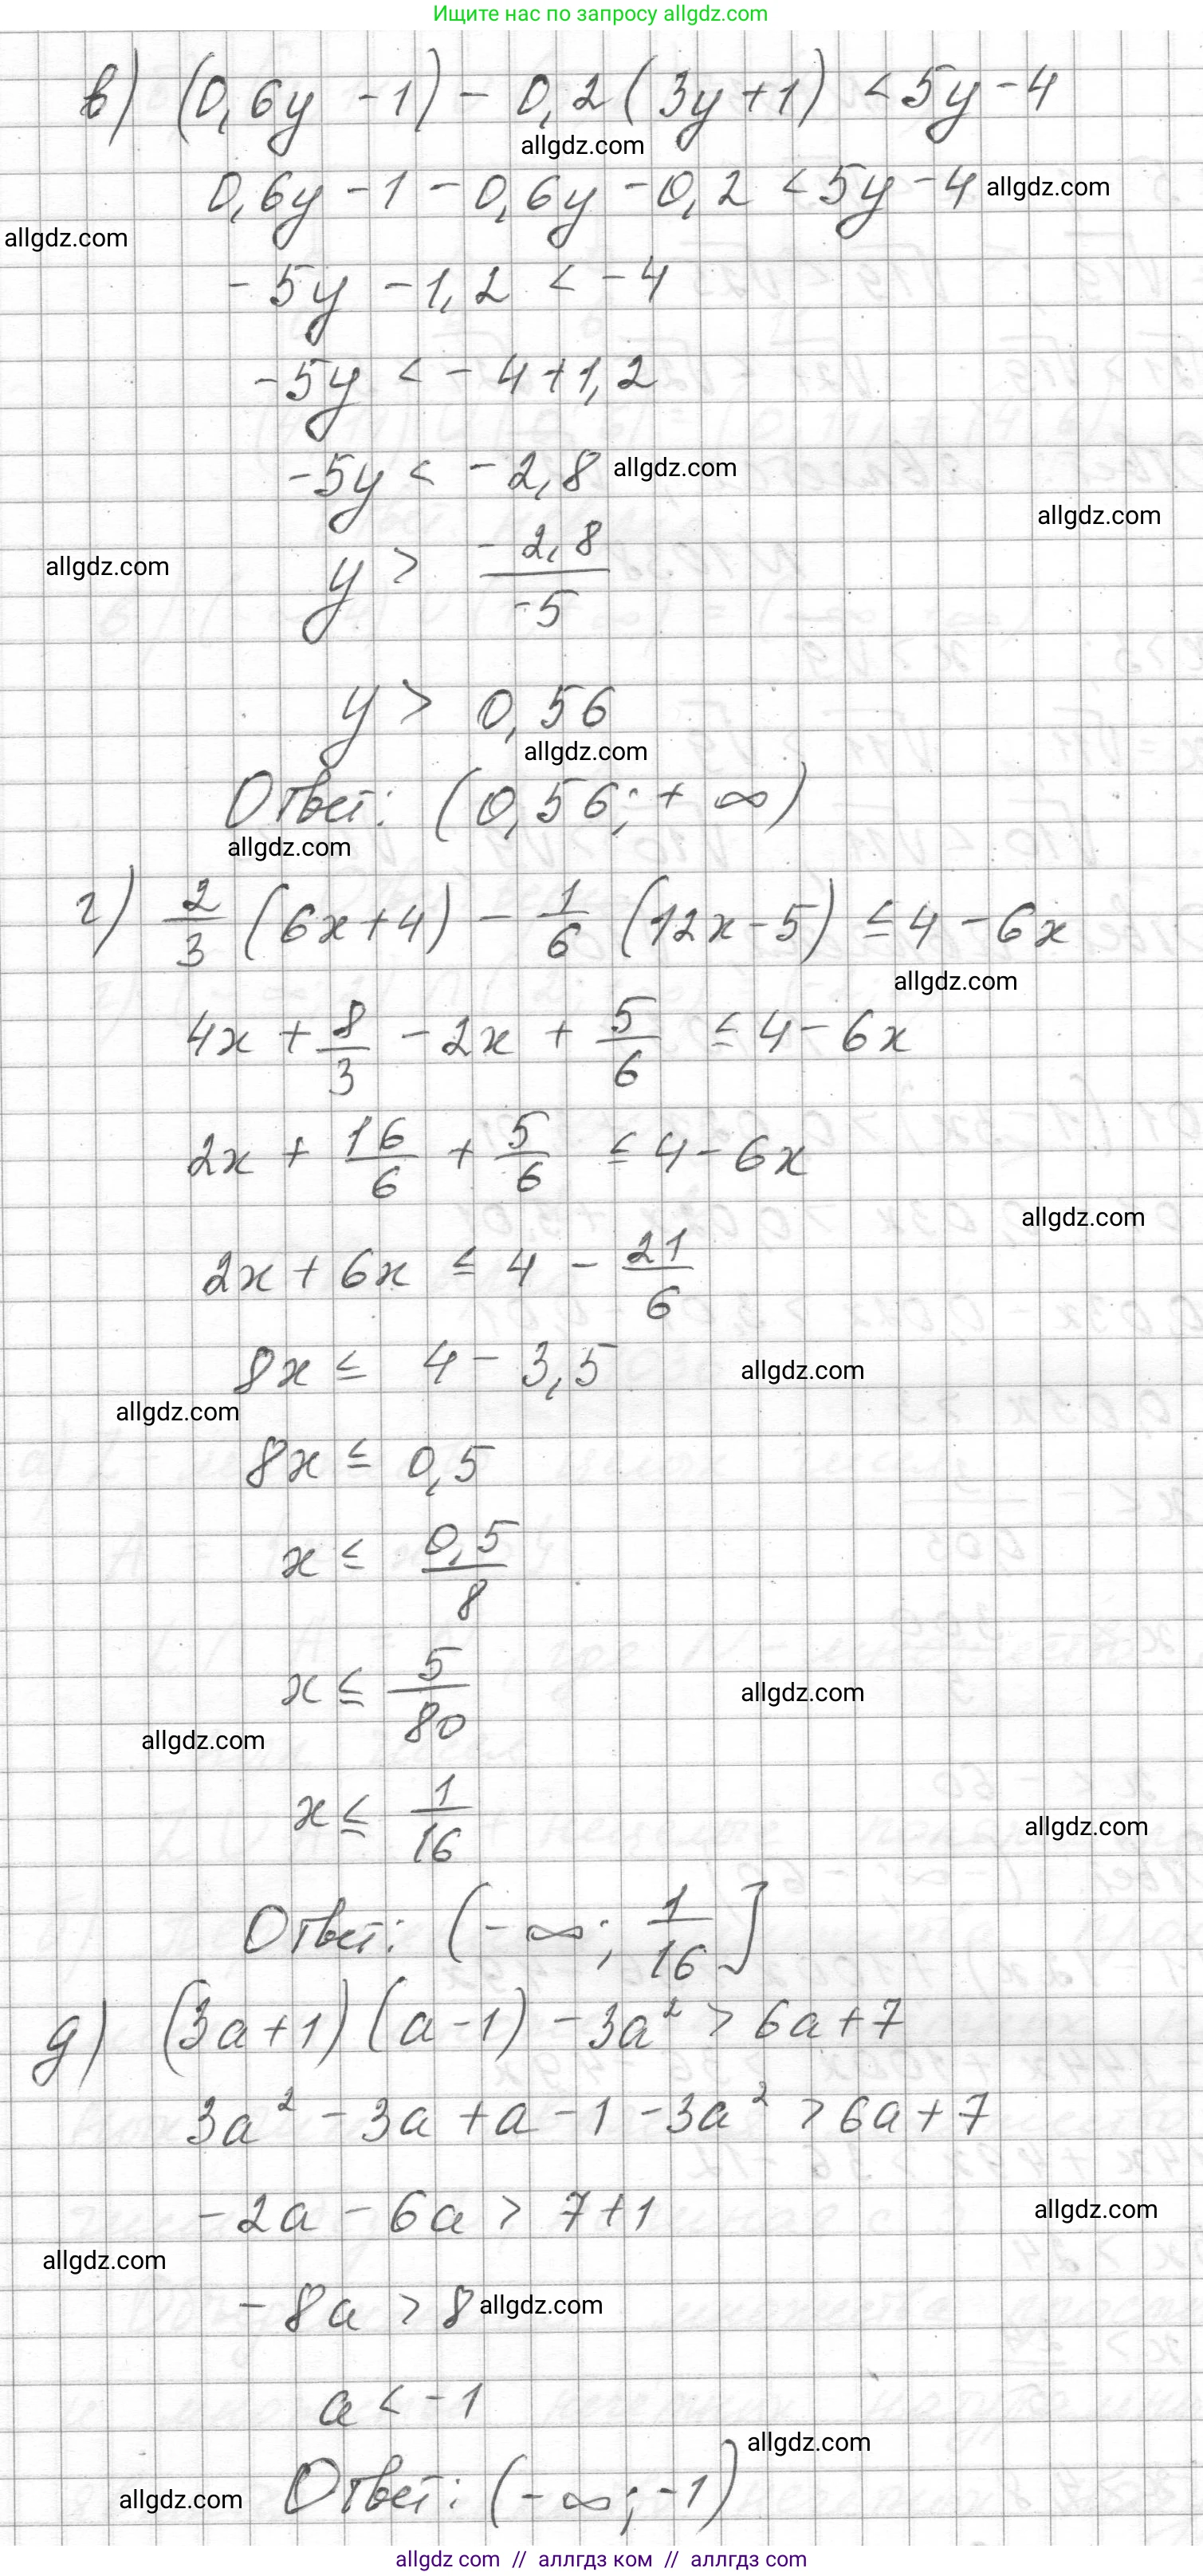 Ищите нас по запросу allgdz.com
в) (0,6y - 1) - 0,2(3y + 1) < 5y - 4
allgdz.com
0,6y - 1 - 0,6y - 0,2 < 5y - 4 allgdz.com
allgdz.com
-5y - 1,2 < -4
-5y < -4 + 1,2
-5y < -2,8 allgdz.com
allgdz.com
allgdz.com
y > -2,8/-5
y > 0,56
allgdz.com
Ответ: (0,56; +∞)
allgdz.com
г) 2/3 (6x + 4) - 1/6 (12x - 5) ≤ 4 - 6x
allgdz.com
4x + 8/3 - 2x + 5/6 ≤ 4 - 6x
2x + 16/6 + 5/6 ≤ 4 - 6x
allgdz.com
2x + 6x ≤ 4 - 21/6
8x ≤ 4 - 3,5 allgdz.com
allgdz.com
8x ≤ 0,5
x ≤ 0,5/8
x ≤ 5/80 allgdz.com
allgdz.com
x ≤ 1/16
allgdz.com
Ответ: (-∞; 1/16]
д) (3a + 1)(a - 1) - 3a² > 6a + 7
3a² - 3a + a - 1 - 3a² > 6a + 7
-2a - 6a > 7 + 1 allgdz.com
allgdz.com
-8a > 8 allgdz.com
a < -1
allgdz.com
Ответ: (-∞; -1)
allgdz.com
allgdz com // аллгдз ком // аллгдз com